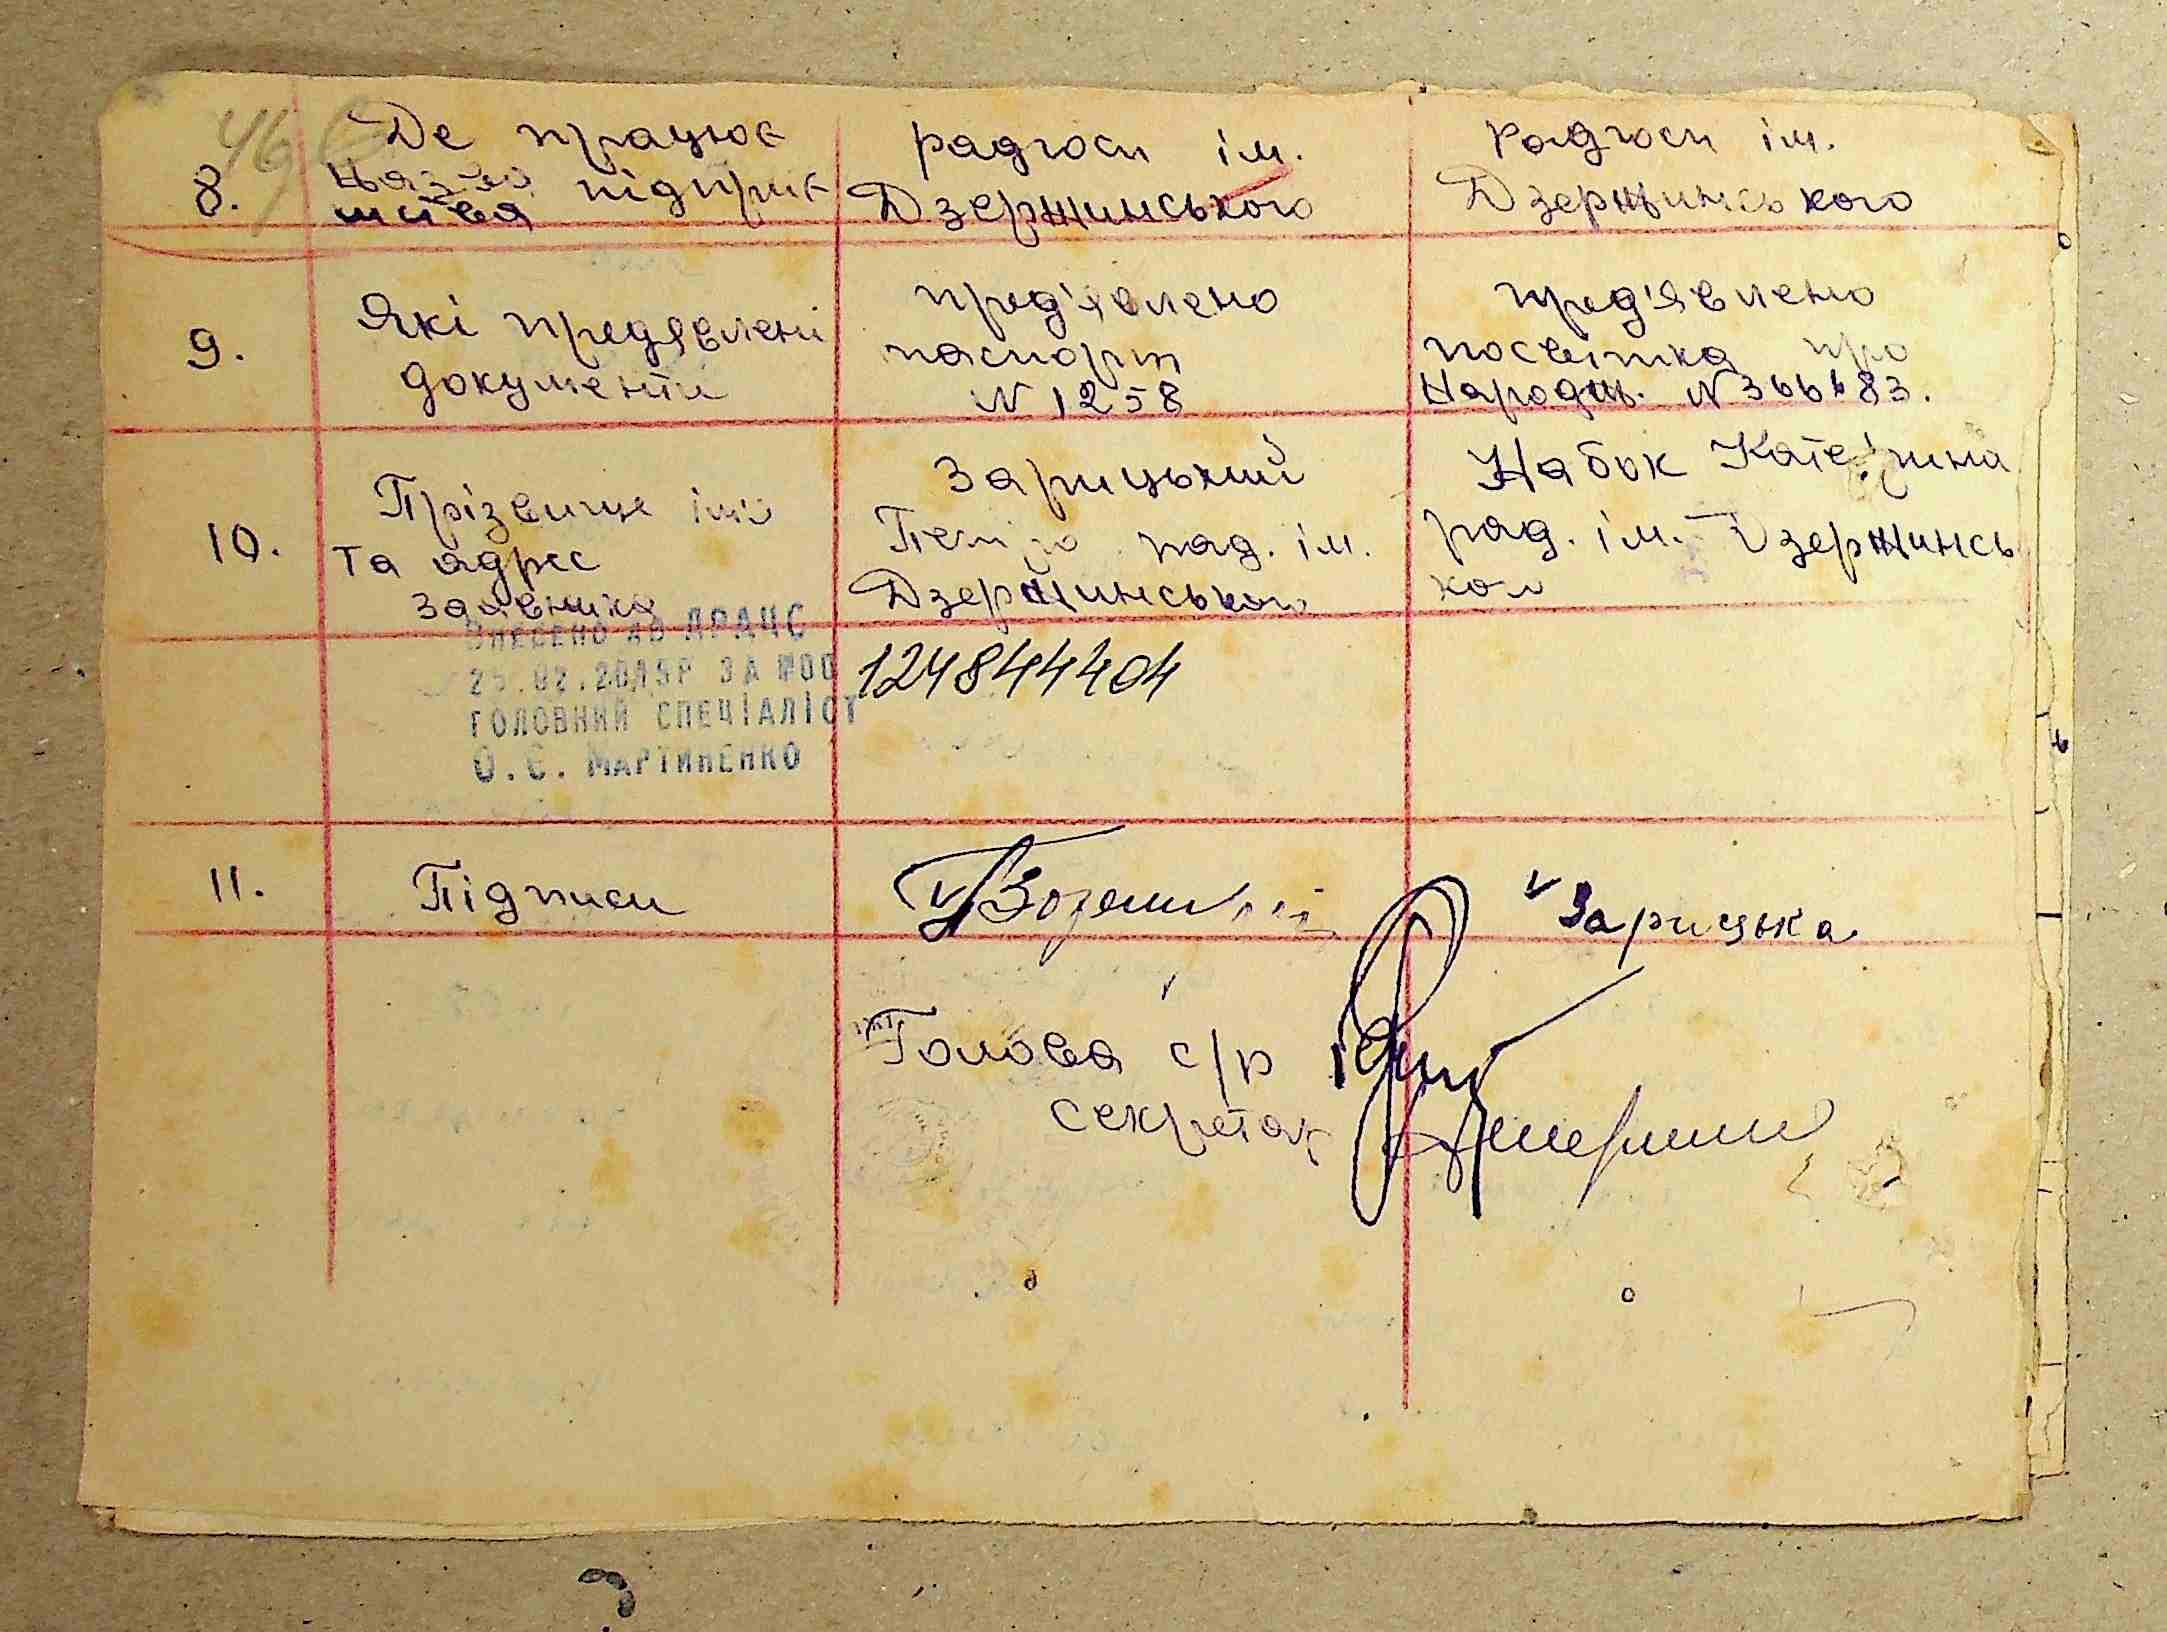 46
8.
Де працює
Назва підприє
мства
радгосп ім.
Дзержинського
радгосп ім.
Дзержинського
9.
Які предявлені
документи
пред'явлено
паспорт
N 1258
пред'явлено
посвітка про
Народж. N 366683.
10.
Прізвище імя
та адрес
заявника
Зарицький
Петро рад. ім.
Дзержинського
Набок Катерина
рад. ім. Дзержинсь
кого
ВНЕСЕНО ДО ДРАЦС
25.02.2019Р ЗА №00
ГОЛОВНИЙ СПЕЦІАЛІСТ
О.Є. МАРТИНЕНКО
124844404
11.
Підписи
Зарицька
Голова с/р
секретар